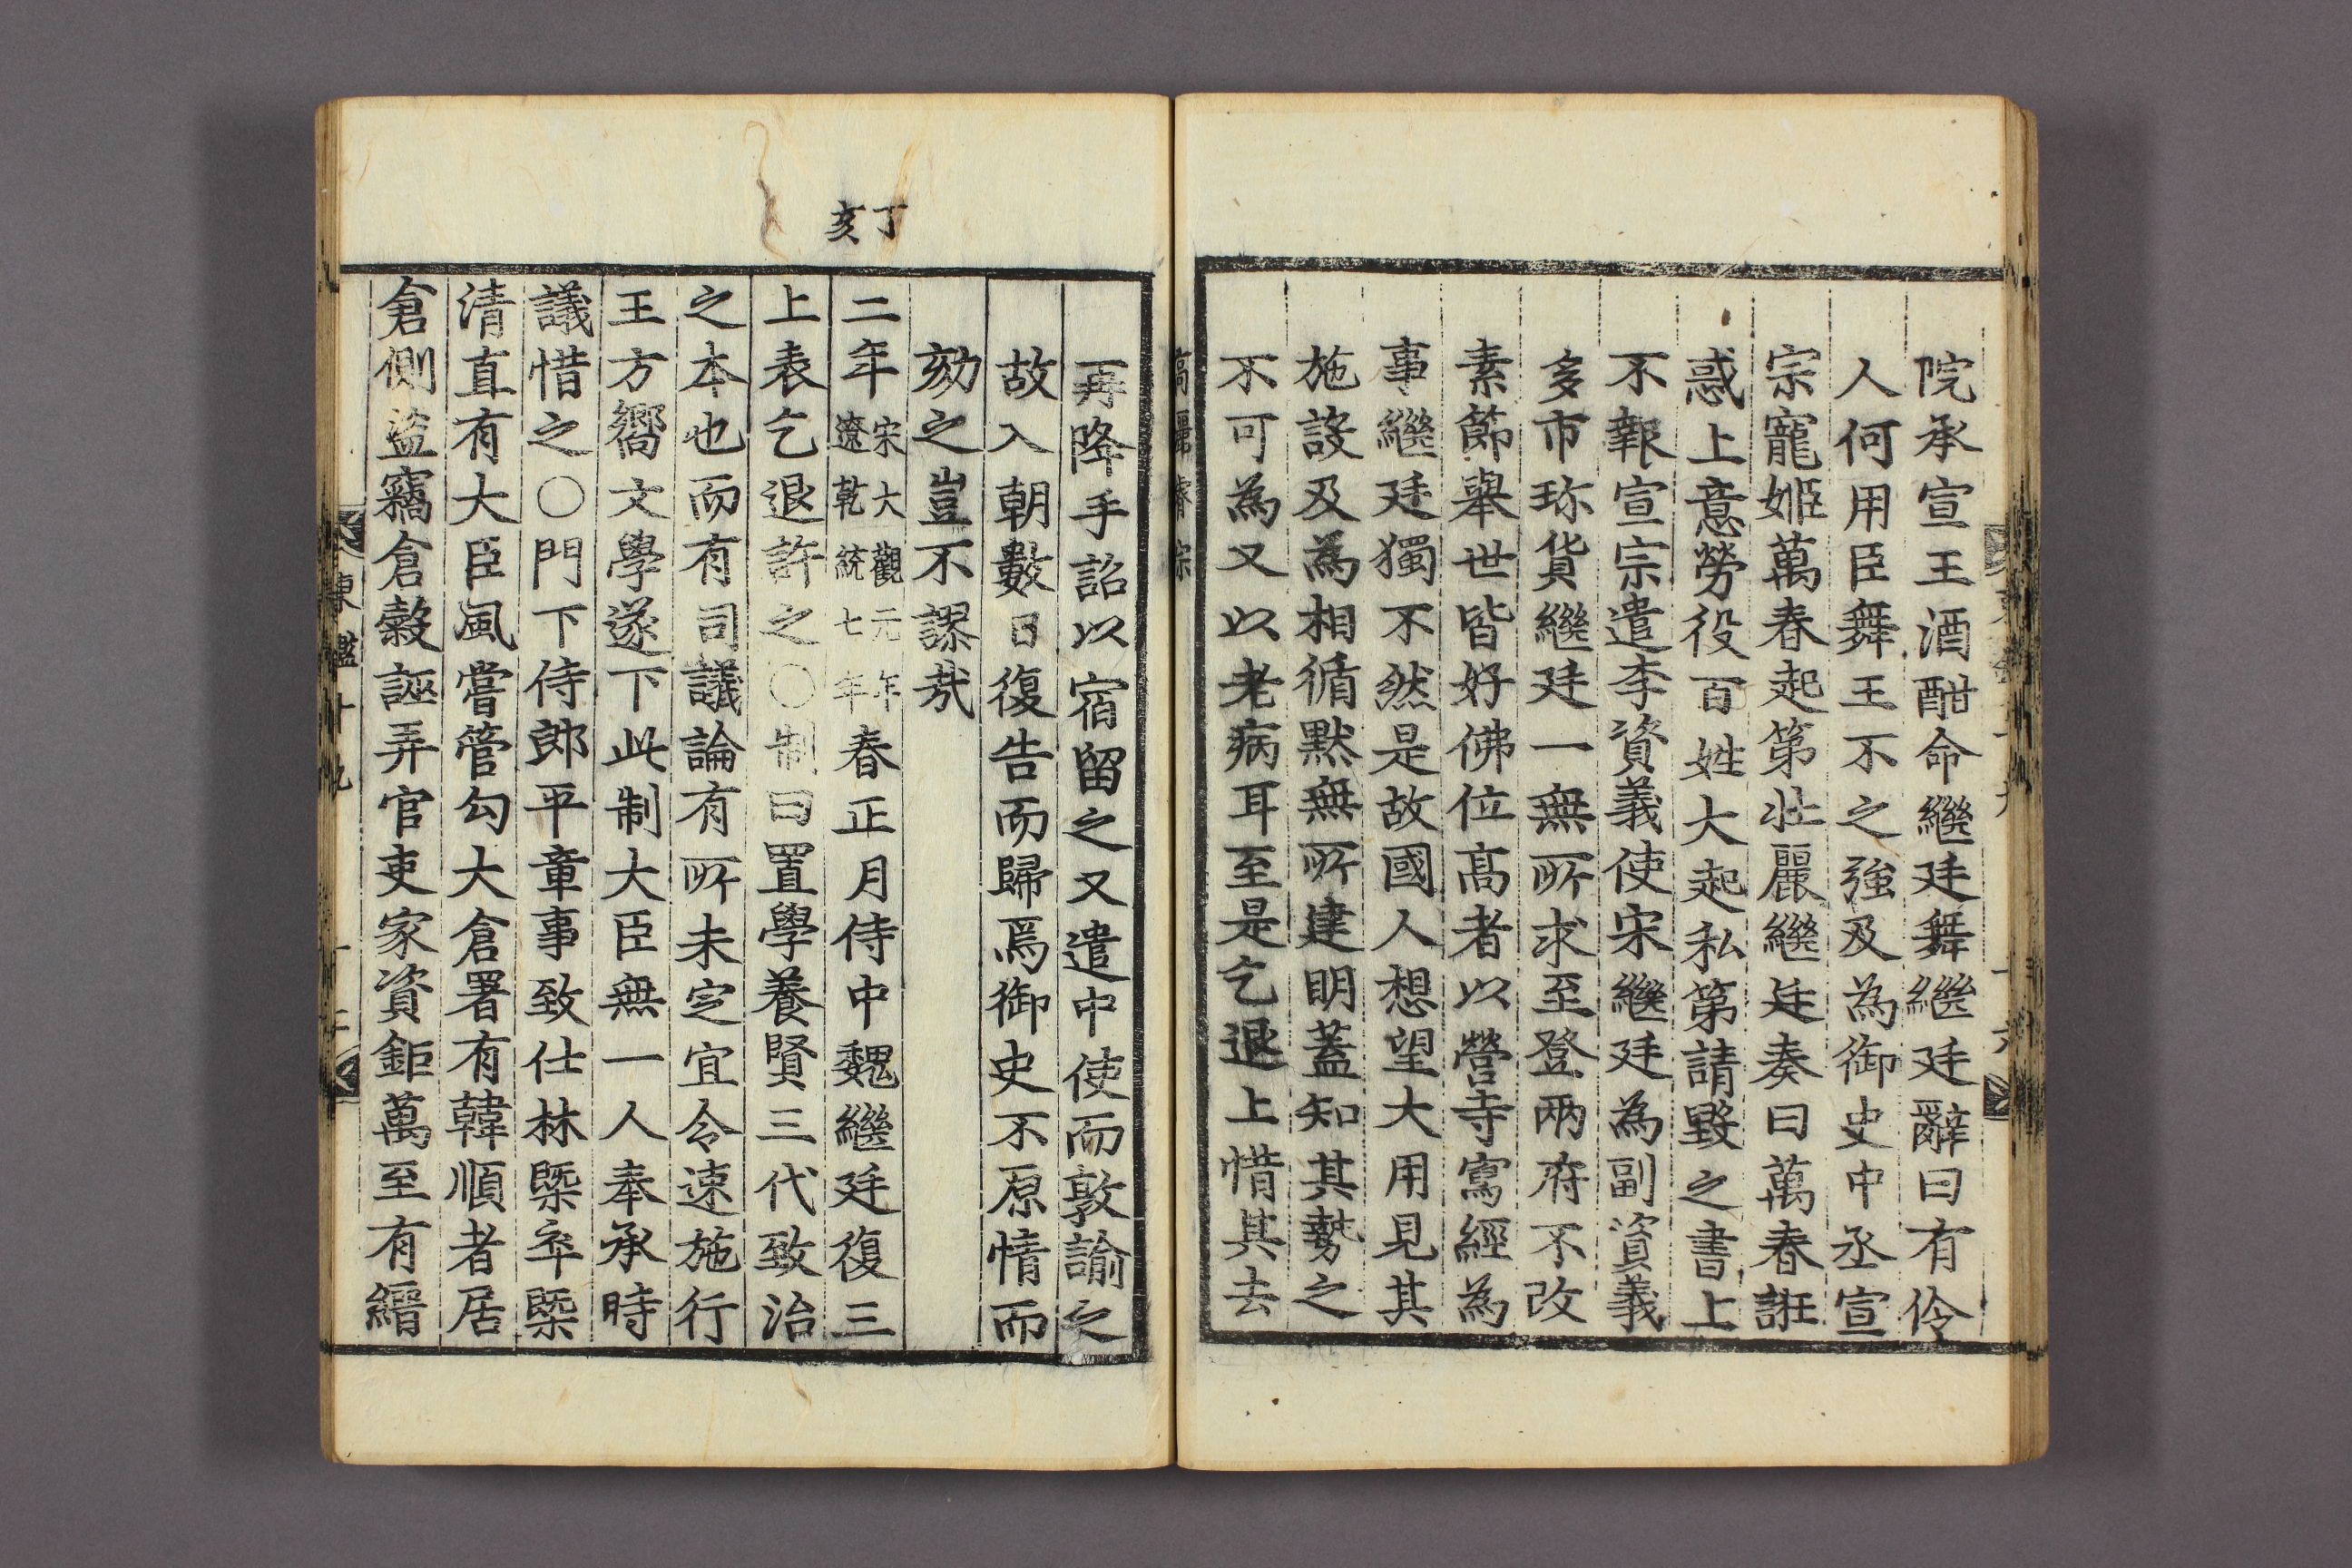 院承宣王酒酣命繼廷舞繼廷辭曰有伶
人何用臣舞王不之強及為御史中丞宣
宗寵姬萬春起第壯麗繼廷奏曰萬春誑
惑上意勞役百姓大起私第請毀之書上
不報宣宗遣李資義使宋繼廷為副資義
多市珎貨繼廷一無所求至登兩府不改
素節舉世皆好佛位高者以營寺寫經為
事繼廷獨不然是故國人想望大用見其
施設及為相循默無所建明蓋知其勢之
不可為又以老病耳至是乞退上惜其去
高麗睿宗
再降手詔以宿留之又遣中使而敦諭之
故入朝數日復告而歸焉御史不原情而
劾之豈不謬哉
丁亥
二年宋大觀元年遼乾統七年春正月侍中魏繼廷復三
上表乞退許之○制曰置學養賢三代致治
之本也而有司議論有所未定宜令速施行
王方嚮文學遂下此制大臣無一人奉承時
議惜之○門下侍郎平章事致仕林槩卒槩
清直有大臣風嘗管勾大倉署有韓順者居
倉側盜竊倉穀誣弄官吏家資鉅萬至有縉
東鑑十九